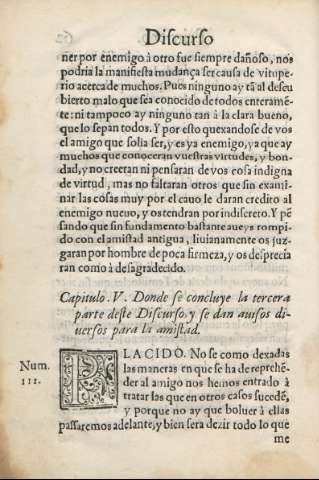 Discurso
ner por enemigo à otro fue siempre dañoso, nos
podria la manifiesta mudança ser causa de vitupe-
rio acerca de muchos. Pues ninguno ay tã al descu
bierto malo que sea conocido de todos enteramẽ-
te: ni tampoco ay ninguno tan à la clara bueno,
que lo sepan todos. Y por esto quexandose de vos
el amigo que solia ser, y es ya enemigo, ya que ay
muchos que conoceran vuestras virtudes, y bon-
dad, y no creeran ni pensaran de vos cosa indigna
de virtud, mas no faltaran otros que sin exami-
nar las cosas muy por el cauo le daran credito al
enemigo nueuo, y os tendran por indiscreto. Y pẽ
sando que sin fundamento bastante aueys rompi-
do con el amistad antigua, liuianamente os juz-
garan por hombre de poca firmeza, y os desprecia
ran como à desagradecido.
Capitulo. V. Donde se concluye la tercera
parte deste Discurso, y se dan auisos di-
uersos para la amistad.
Num.
III.
PLACIDO. No se como dexadas
las maneras en que se ha de reprehẽ-
der al amigo nos hemos entrado à
tratar las que en otros casos sucedẽ,
y porque no ay que boluer à ellas
passaremos adelante, y bien sera dezir todo lo que
me